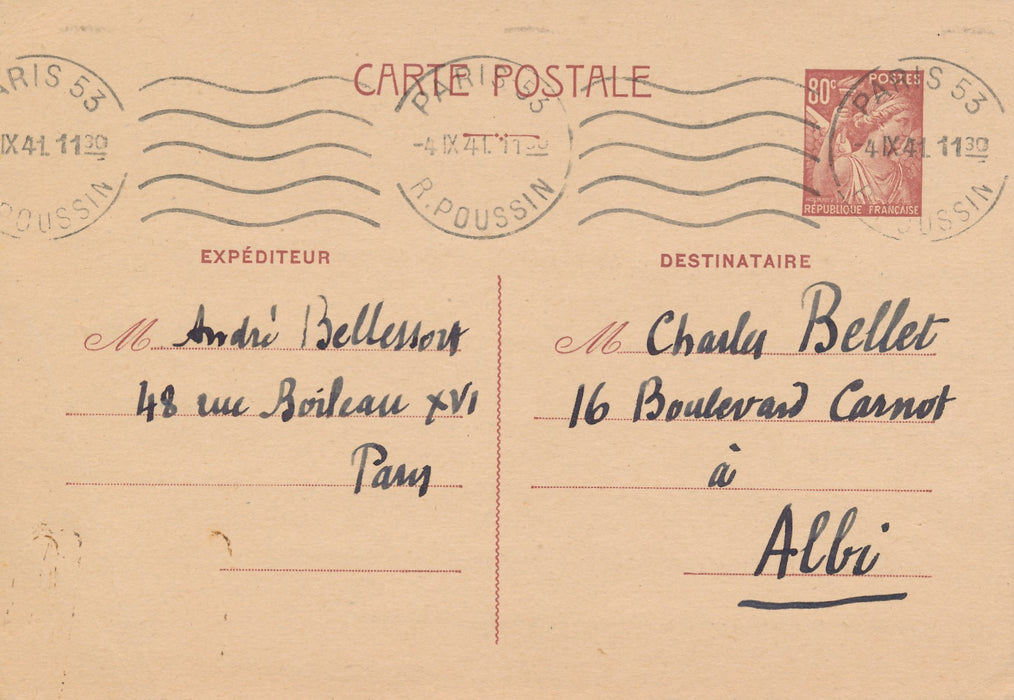 CARTE POSTALE
ARIS 53
IX 41. 11 30
POUSSIN
PARIS 53
-4 IX 41. 11 30
R. POUSSIN
80c POSTES
RÉPUBLIQUE FRANÇAISE
PARIS 53
4 IX 41 11 30
OUSSIN
EXPÉDITEUR
M André Bellessort
48 rue Boileau XVI
Paris
DESTINATAIRE
M Charles Bellet
16 Boulevard Carnot
à
Albi